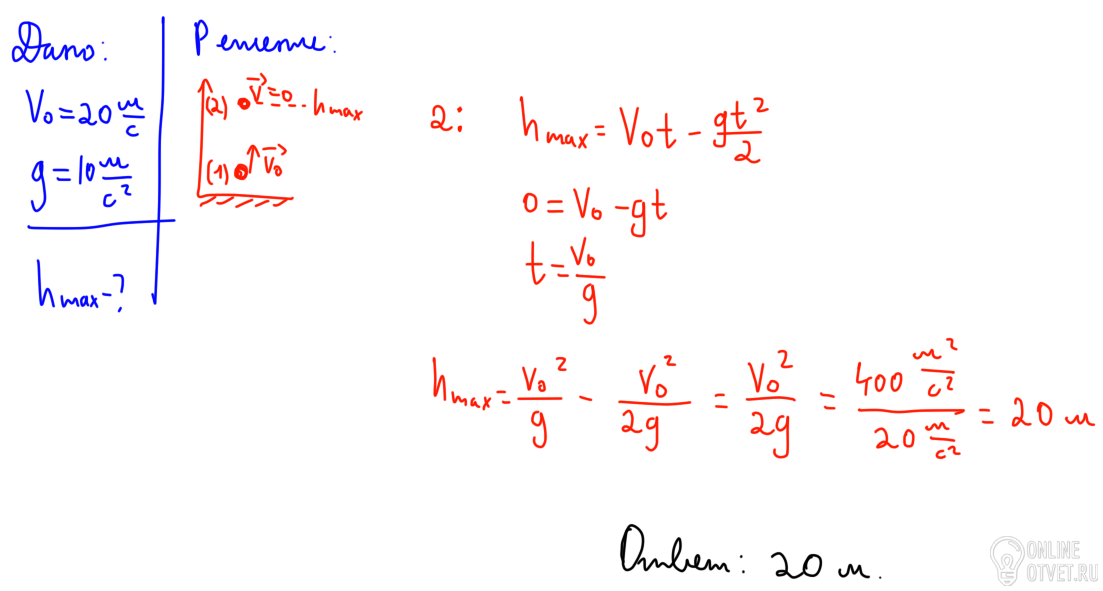 Дано:
V₀ = 20 м/с
g = 10 м/с²
hmax - ?
Решение:
(2) V⃗ = 0 - hmax
(1) V⃗₀
2: hmax = V₀t - gt²/2
0 = V₀ - gt
t = V₀/g
hmax = V₀²/g - V₀²/2g = V₀²/2g = 400 м²/с² / 20 м/с² = 20 м
Ответ: 20 м.
ONLINE
OTVET.RU